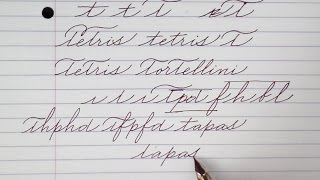 t t T t T
Tetris tetris T
Tetris Tortellini
ı ı i Tpd f h b l
thphd tfpfd tapas
tapas